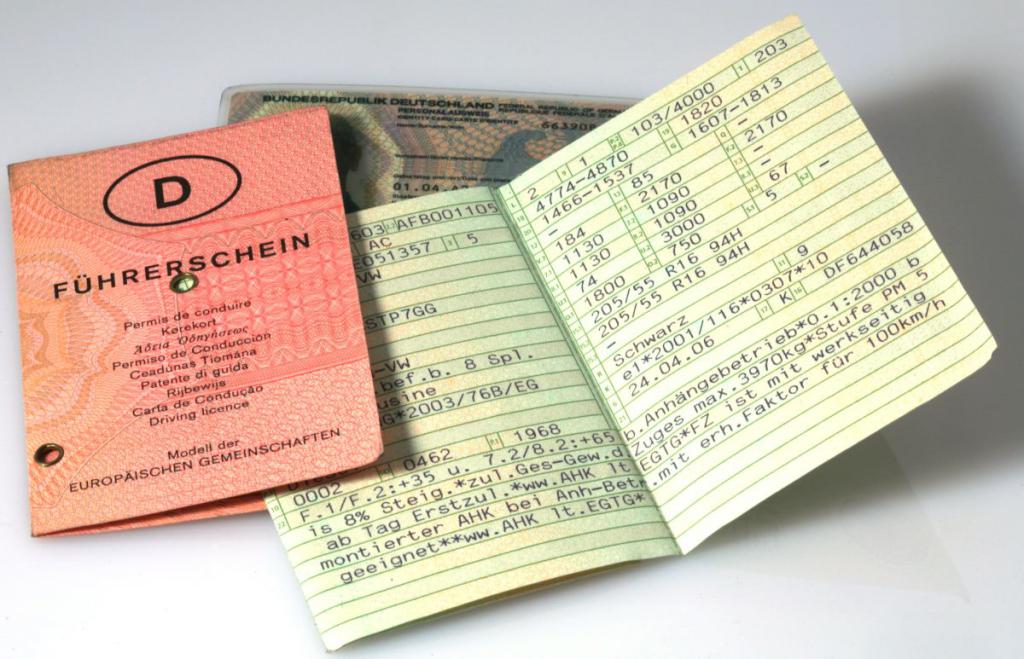 D
FÜHRERSCHEIN
Permis de conduire
Kørekort
Ἄδεια Ὁδηγήσεως
Permiso de Conducción
Ceadúnas Tiomána
Patente di guida
Rijbewijs
Carta de Condução
Driving licence
Modell der
EUROPÄISCHEN GEMEINSCHAFTEN
BUNDESREPUBLIK DEUTSCHLAND
PERSONALAUSWEIS
IDENTITY CARD/CARTE D'IDENTITE
01.04.
603 AFB001105
AC
E051357 5
VW
STP7GG
-VW
bef.b. 8 Spl.
usine
G*2003/76B/EG
1968
0462
0002
F.1/F.2:+35 u. 7.2/8.2:+65
is 8% Steig.*zul.Ges-Gew.d
ab Tag Erstzul.*ww.AHK lt
montierter AHK bei Anh-Betr
geeignet**ww.AHK lt.EGTG*
2 1 103/4000 203
4774-4870 1820
1466-1537 1607-1813
- 85 -
184 2170 2170
1130 1090 -
1130 1090 -
74 3000 67 -
1800 750 5
205/55 R16 94H
205/55 R16 94H
-
schwarz 9
e1*2001/116*0307*10
24.04.06 K DF644058
b.Anhängebetrieb*0.1:2000 b
Zuges max.3970kg*Stufe PM 5
EGTG*FZ ist mit werkseitig
.mit erh.Faktor für 100km/h